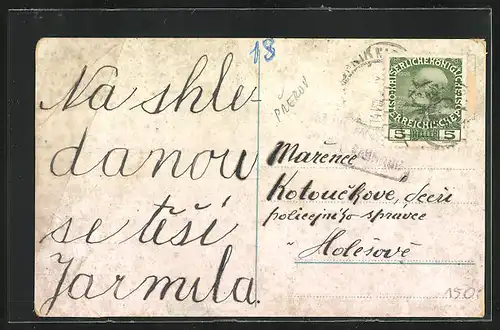 18
Na shle-
danou
se těší
Jarmila.
PŘEROV
KAISERLICHE KÖNIGLICHE
ÖSTERREICHISCHE POST
5 HELLER 5
Mařence
Kotoučkove, dceři
policejního správce
Holešově
150,-